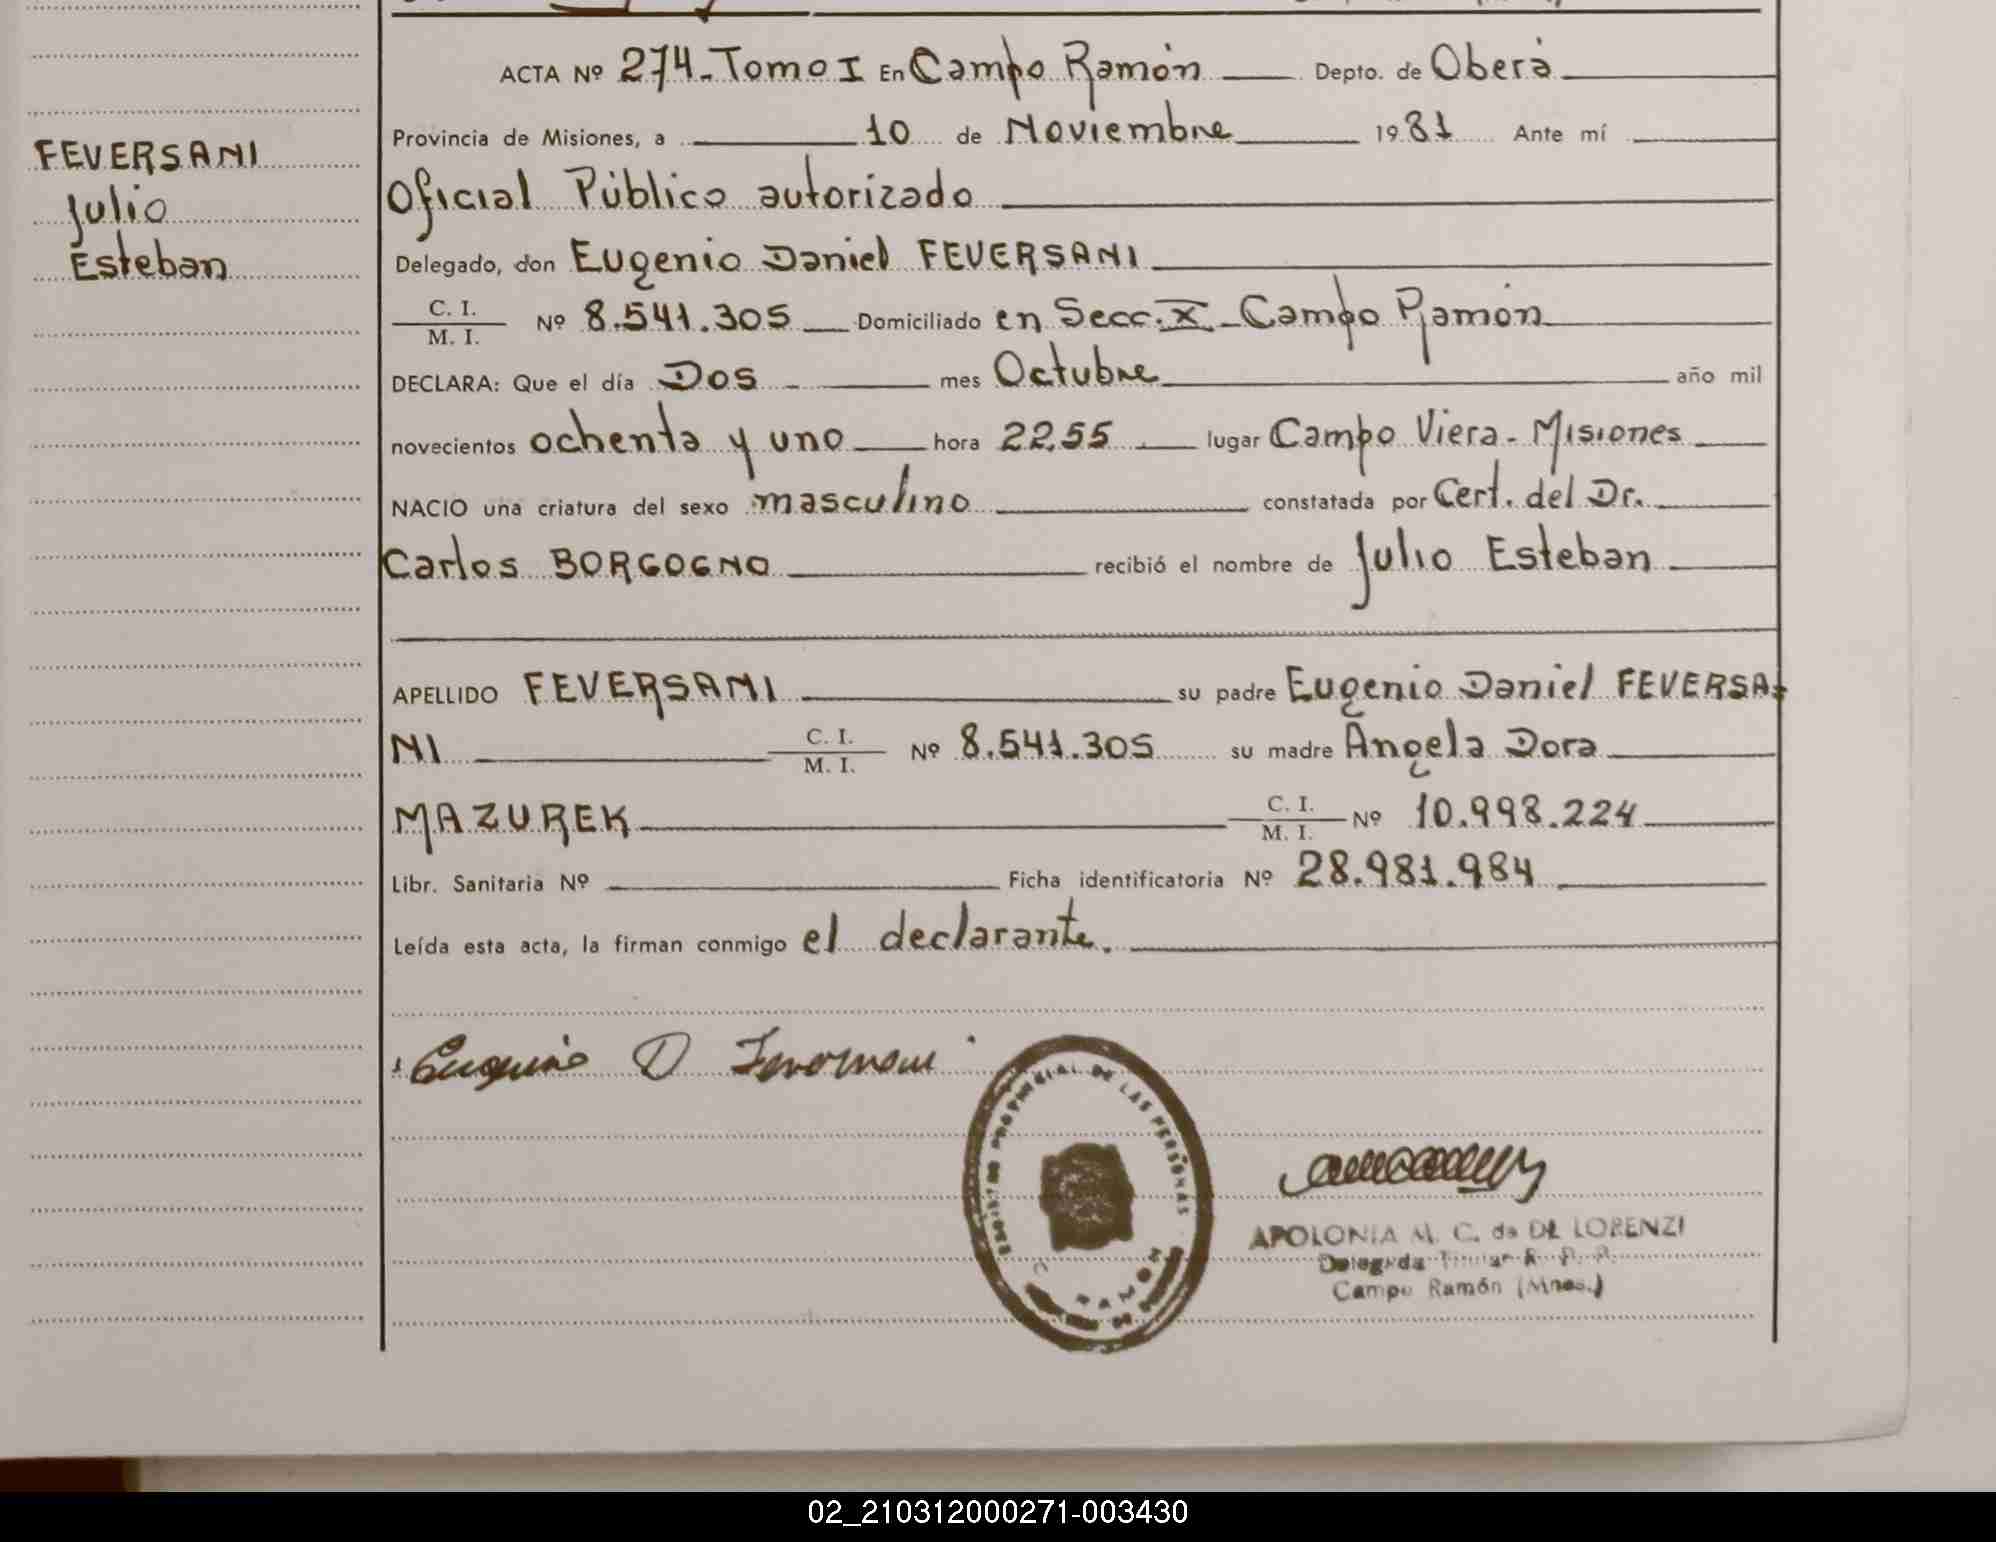 ACTA Nº 274-Tomo I En Campo Ramón Depto. de Oberá
Provincia de Misiones, a 10 de Noviembre 1981 Ante mí
Oficial Público autorizado
Delegado, don Eugenio Daniel FEVERSANI
C. I.
M. I. Nº 8.541.305 Domiciliado en Secc. X - Campo Ramón
DECLARA: Que el día Dos mes Octubre año mil
novecientos ochenta y uno hora 22,55 lugar Campo Viera - Misiones
NACIO una criatura del sexo masculino constatada por Cert. del Dr.
Carlos BORGOGNO recibió el nombre de Julio Esteban
APELLIDO FEVERSANI su padre Eugenio Daniel FEVERSA-
NI C. I. M. I. Nº 8.541.305 su madre Angela Dora
MAZUREK C. I. M. I. Nº 10.998.224
Libr. Sanitaria Nº Ficha identificatoria Nº 28.981.984
Leída esta acta, la firman conmigo el declarante.
FEVERSANI
Julio
Esteban
Eugenio D
PROVINCIAL DE LAS PERSONAS
APOLONIA M. C. de DE LORENZI
Delegada Titular R. P. P.
Campo Ramón (Mnes.)
02_210312000271-003430